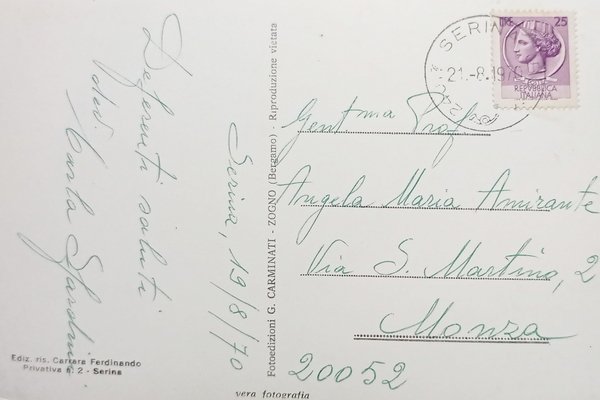 Deferenti saluti
dev.
Carla
Serina, 19/8/70
Ediz. ris. Carrara Ferdinando
Privativa n. 2 - Serina
Fotoedizioni G. CARMINATI - ZOGNO (Bergamo) - Riproduzione vietata
vera fotografia
SERINA
21.-8.1970
25
POSTE
REPVBBLICA
ITALIANA
Gent.ma Prof.
Angela Maria Amirante
Via S. Martino, 2
Monza
20052